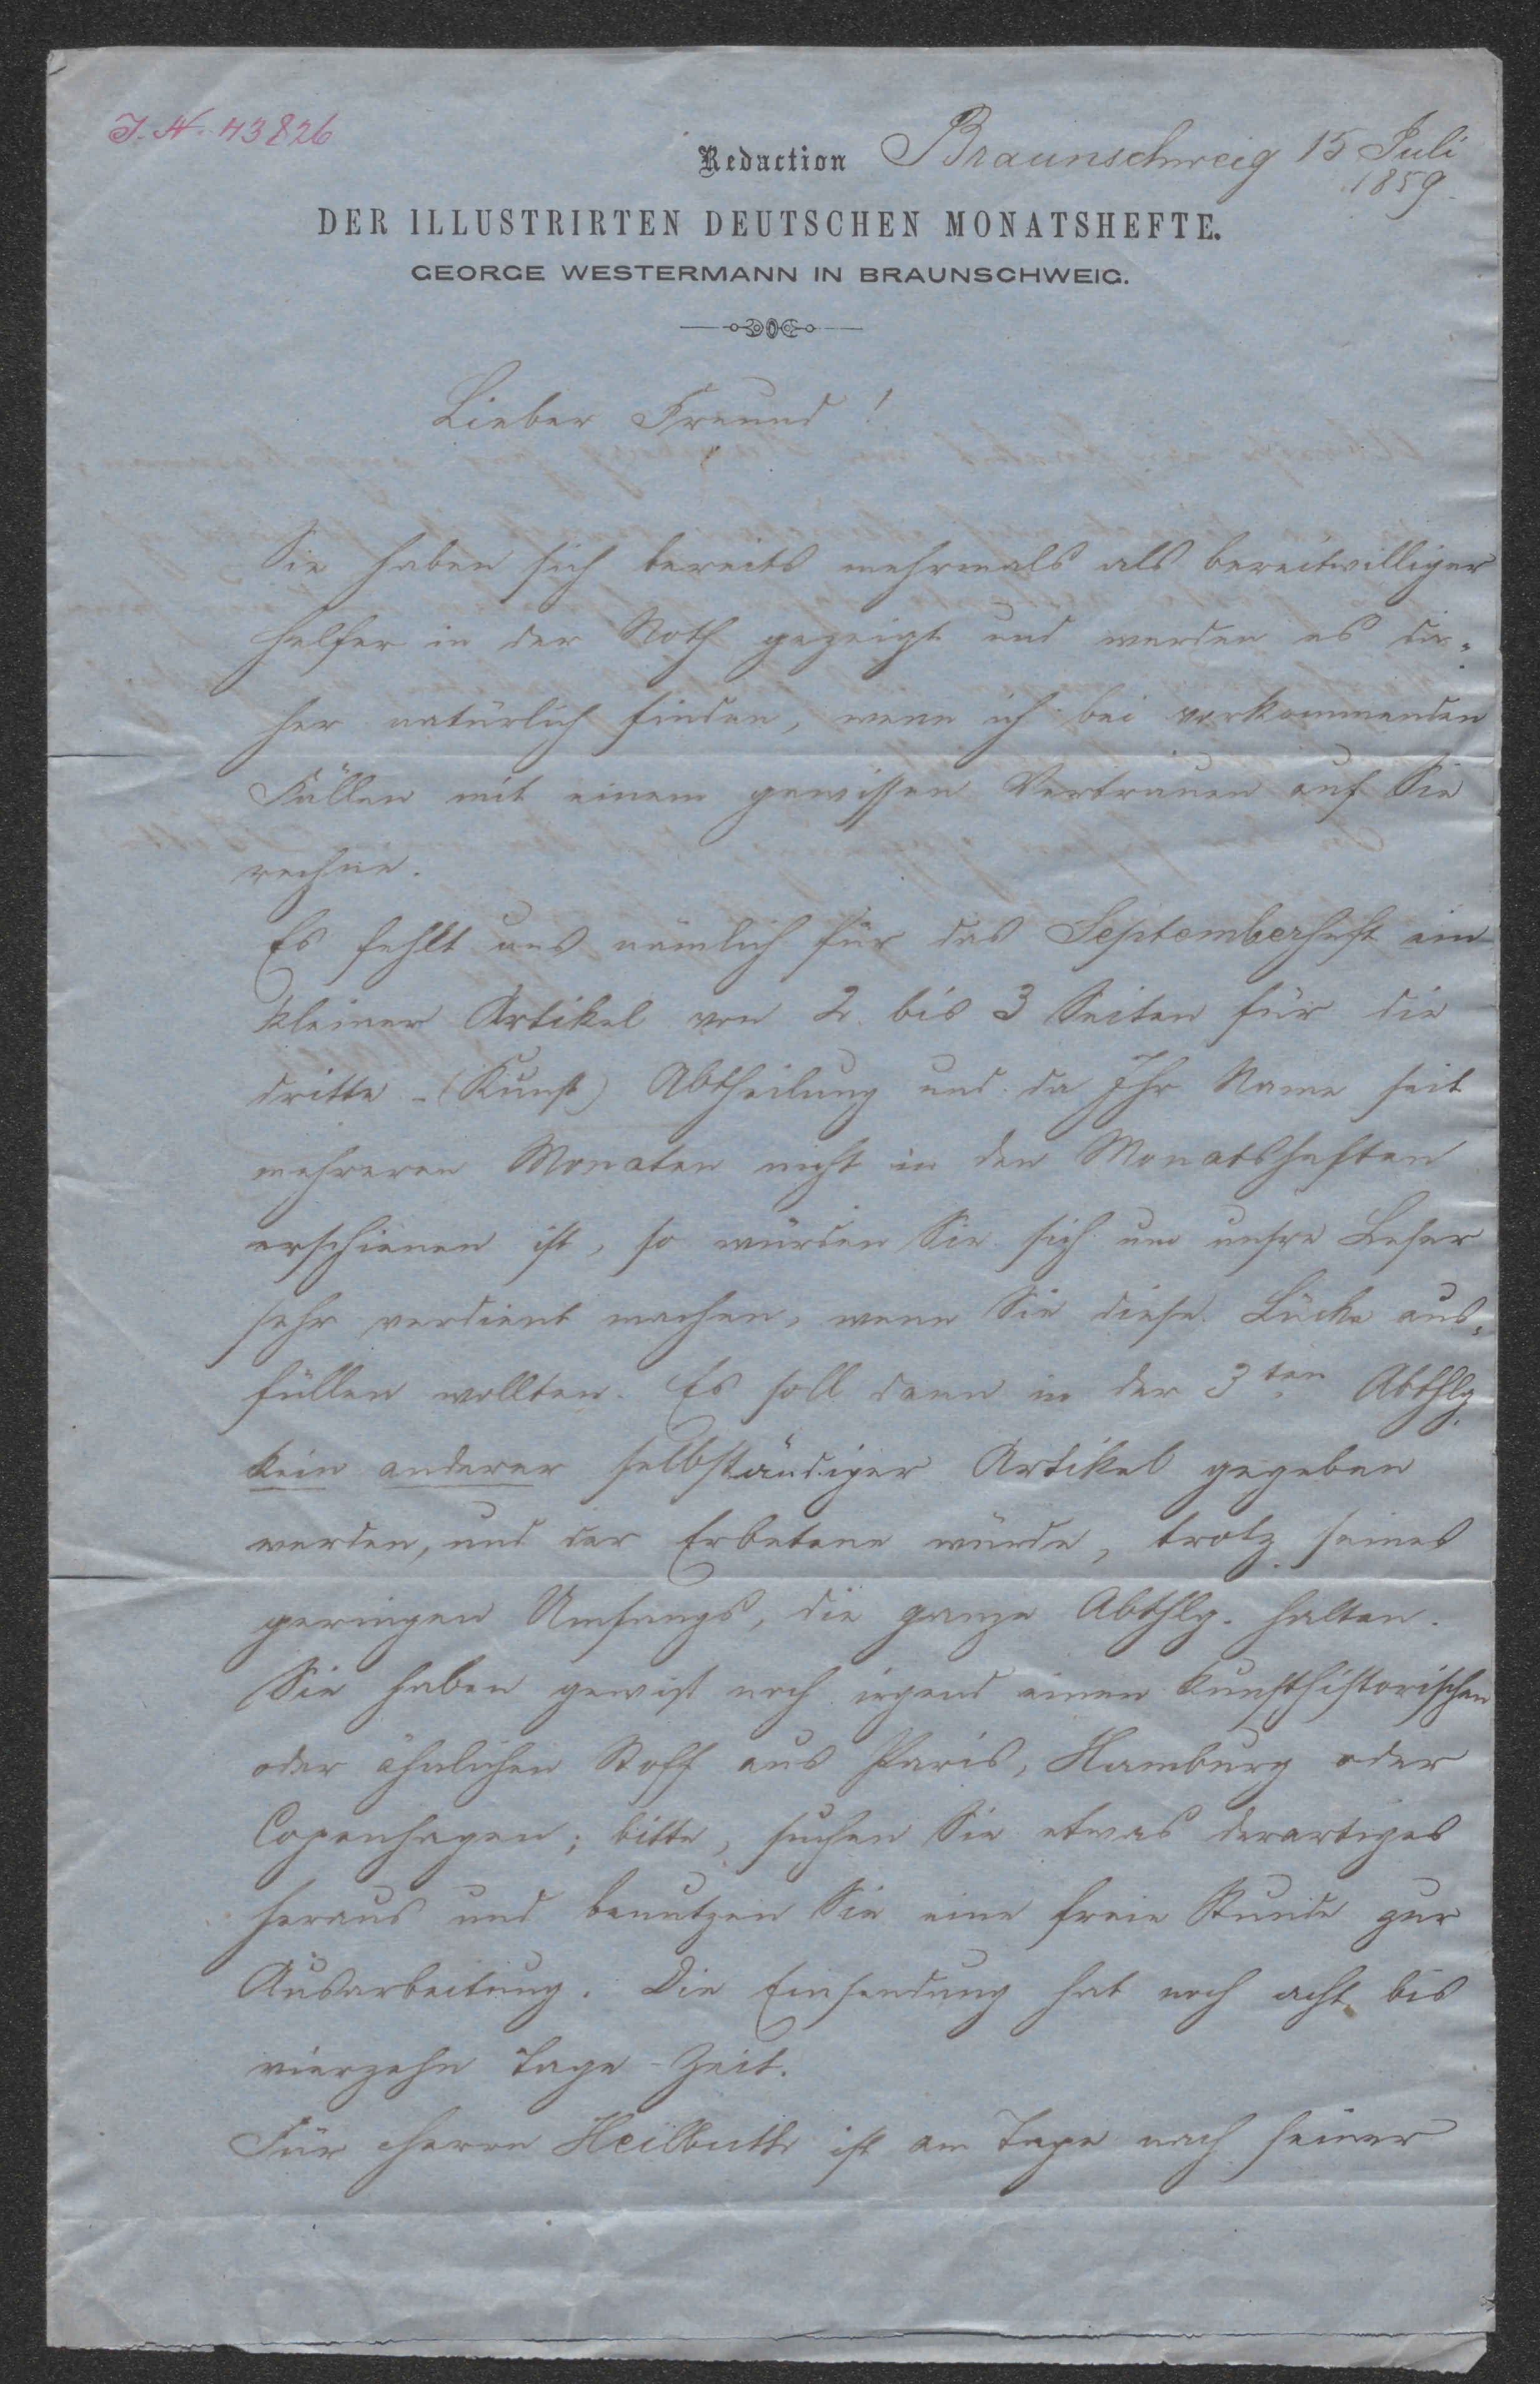 J. N. 43826
Redaction Braunschweig 15 Juli
1859.
DER ILLUSTRIRTEN DEUTSCHEN MONATSHEFTE.
GEORGE WESTERMANN IN BRAUNSCHWEIG.
Lieber Freund!
Sie haben sich bereits mehrmals als bereitwilliger
Helfer in der Noth gezeigt und werden es da=
her natürlich finden, wenn ich bei vorkommenden
Fällen mit einem gewissen Vertrauen auf Sie
rechne.
Es fehlt uns nämlich für das Septemberheft ein
kleiner Artikel von 2 bis 3 Seiten für die
dritte - (Kunst) Abtheilung und da Ihr Name seit
mehreren Monaten nicht in den Monatsheften
erschienen ist, so würden Sie sich um unsre Leser
sehr verdient machen, wenn Sie diese Lücke aus=
füllen wollten. Es soll dann in der 3ten Abthlg.
kein anderer selbständiger Artikel gegeben
werden, und der Erbetene würde, trotz seines
geringen Umfangs, die ganze Abthlg. halten.
Sie haben gewiß noch irgend einen kunsthistorischen
oder ähnlichen Stoff aus Paris, Hamburg oder
Copenhagen; bitte, suchen Sie etwas derartiges
heraus und benutzen Sie eine freie Stunde zur
Ausarbeitung. Die Einsendung hat noch acht bis
vierzehn Tage Zeit.
Für Herrn Heilbuth ist am Tage nach seiner